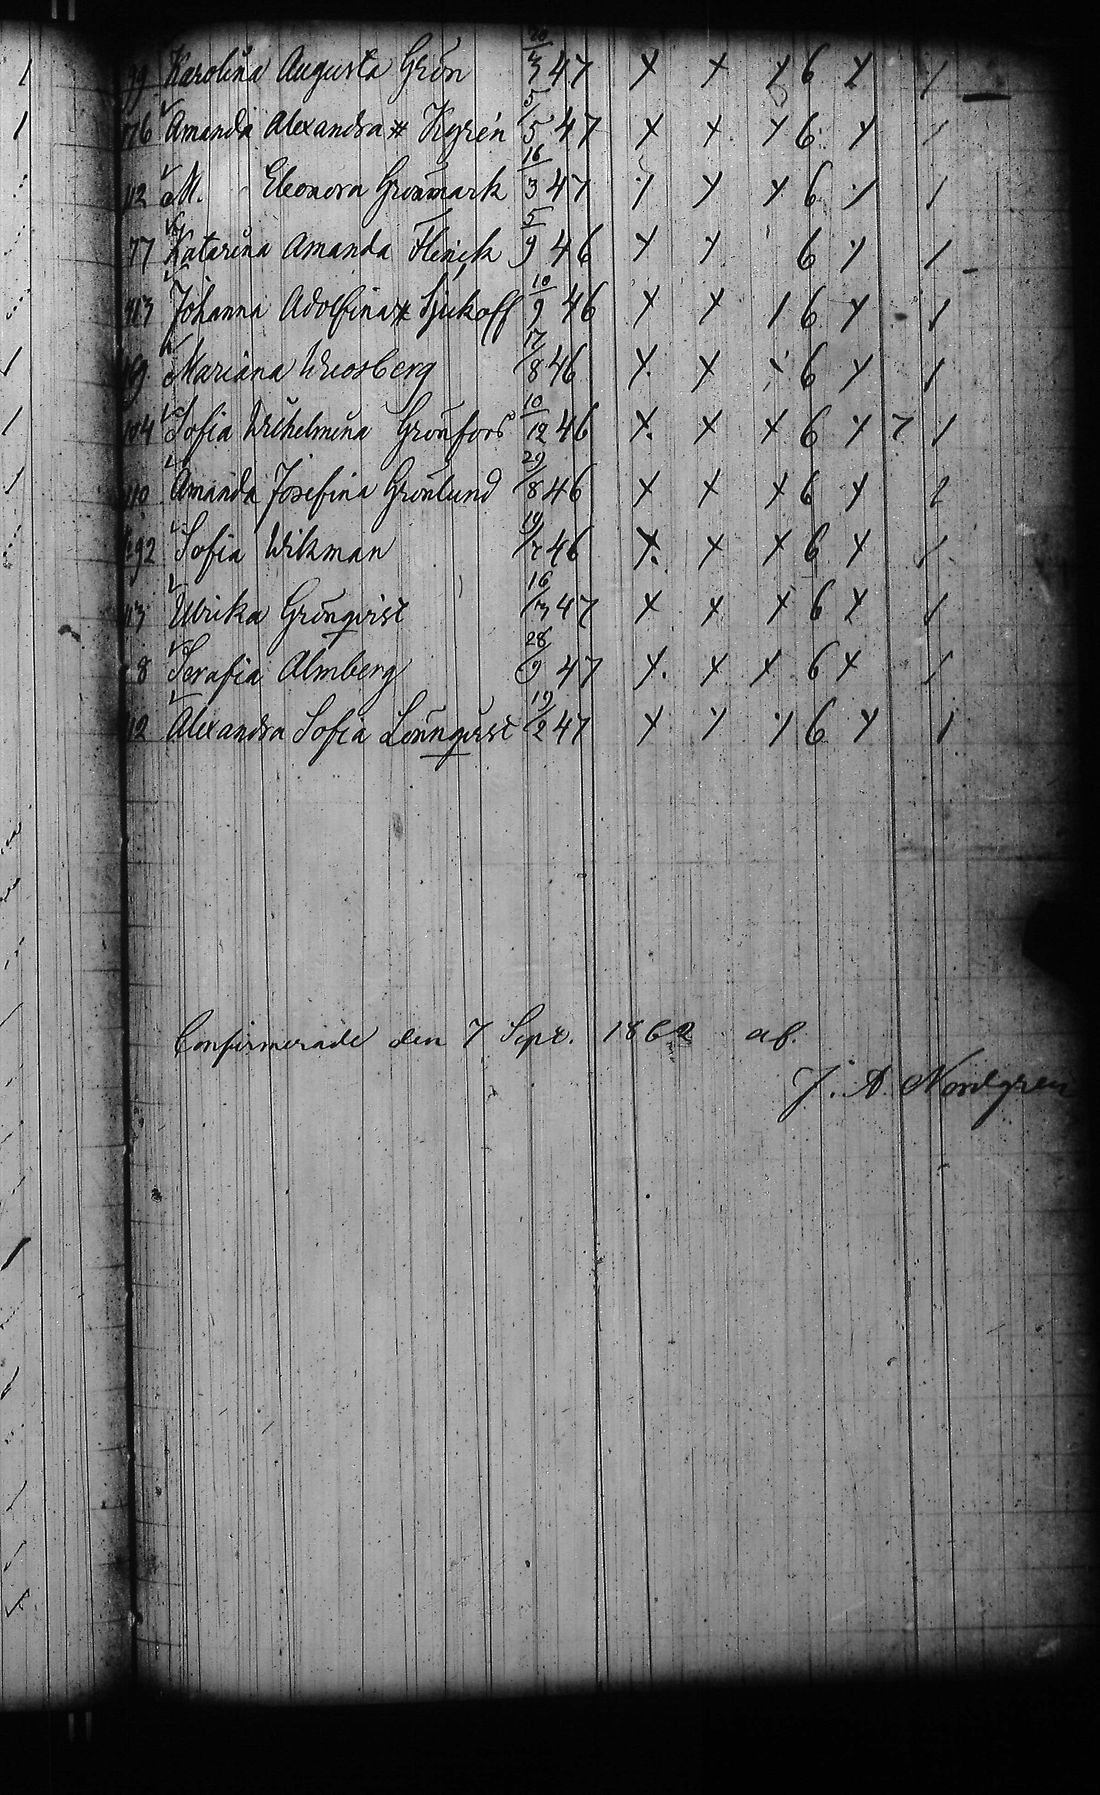 99 Karolina Augusta Grön 20/3 47 x x x 6 x /
76 Amanda Alexandra # Kyrén 5/5 47 x x x 6 x /
112 M. Eleonora Grönmark 16/3 47 x x x 6 x /
77 Katarina Amanda Flenick 5/9 46 x x 6 x /
113 Johanna Adolfina # Sjukoff 10/9 46 x x / 6 x /
Mariana 17/8 46 x x 6 x /
104 Sofia Wilhelmina Grönfors 10/12 46 x x x 6 x 7 /
110 Amanda Josefina Grönlund 29/8 46 x x x 6 x /
92 Sofia Wikman 19/7 46 x x x 6 x /
13 Ulrika Grönqvist 16/3 47 x x x 6 x /
8 Serafia Almberg 28/9 47 x x x 6 x /
112 Alexandra Sofia Lönnqvist 19/2 47 x x x 6 x /
Confirmerade den 7 Sept. 1862 af.
J. A. Nordgren